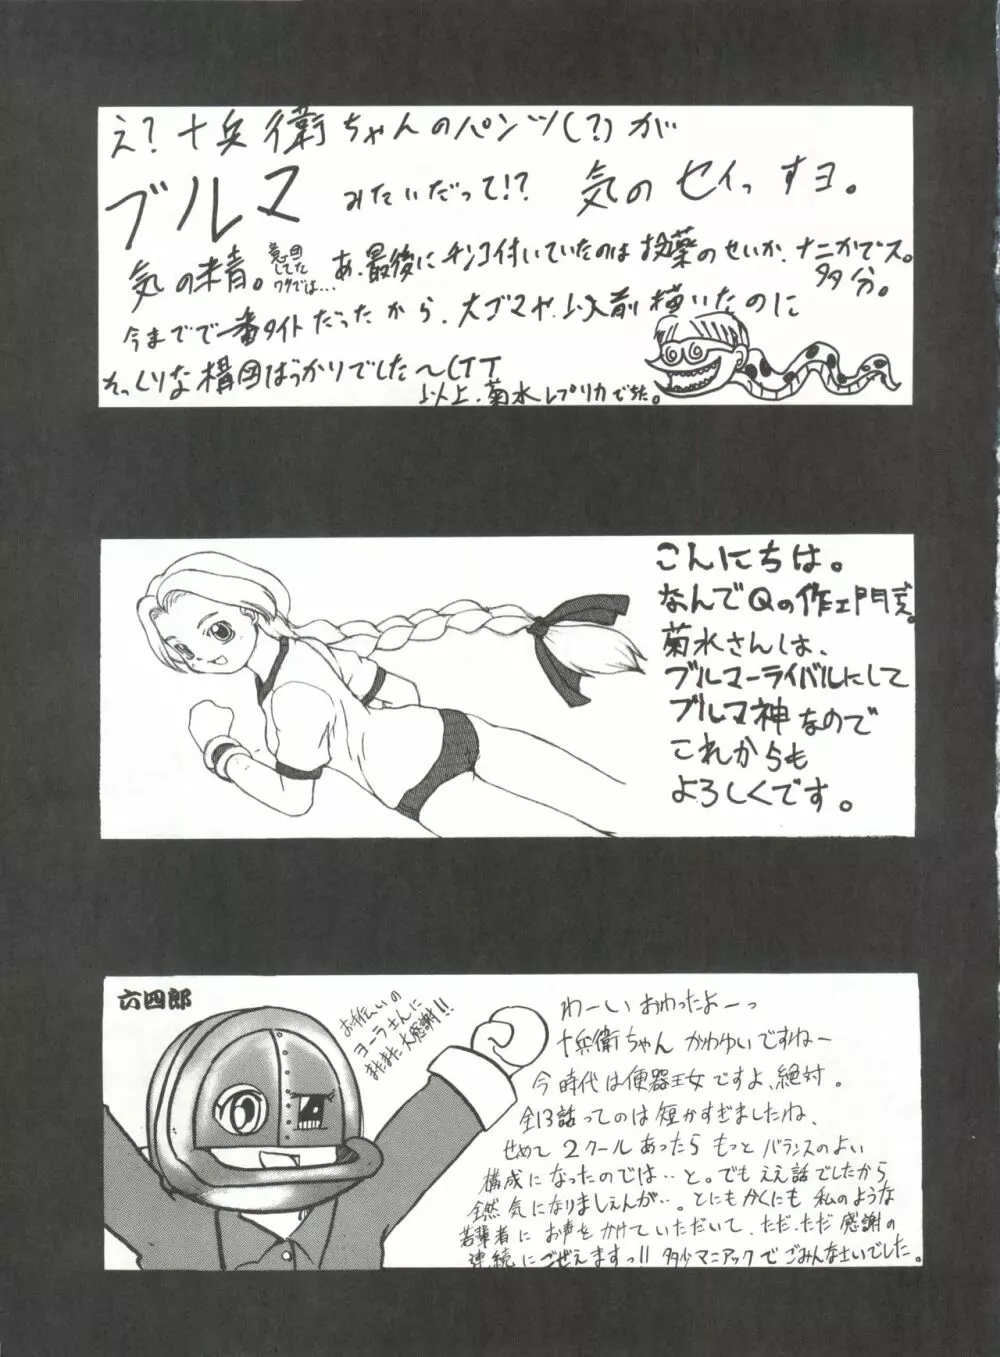 え？十兵衛ちゃんのパンツ(？)が
ブルマ みたいだって!? 気のセイっすヨ。
気の精。意図してたワケでは… あ、最後にチンコ付いていたのは投薬のせいか、ナニかでス。
多分。
今までで一番タイトだったから、大ゴマや、以前描いたのに
そっくりな構図ばっかりでした〜(TT
以上、菊水レプリカでした。
こんにちは。
なんでQの作エ門だ。
菊水さんは、
ブルマーライバルにして
ブルマ神なので
これからも
よろしくです。
六四郎
お手伝いの
ヨーラさんに
またまた大感謝!!
わーい おわったよーっ
十兵衛ちゃん かわゆいですねー
今時代は便器王女ですよ、絶対。
全13話ってのは短かすぎましたね、
せめて 2クール あったら もっと バランスのよい
構成に なったのでは‥と。でも ええ話でしたから
全然 気になりましぇんが‥。とにもかくにも 私のような
若輩者に お声を かけて いただいて、ただ、ただ 感謝の
連続に ごぜえますっ!! 多少マニアックで ごみんなさいでした。